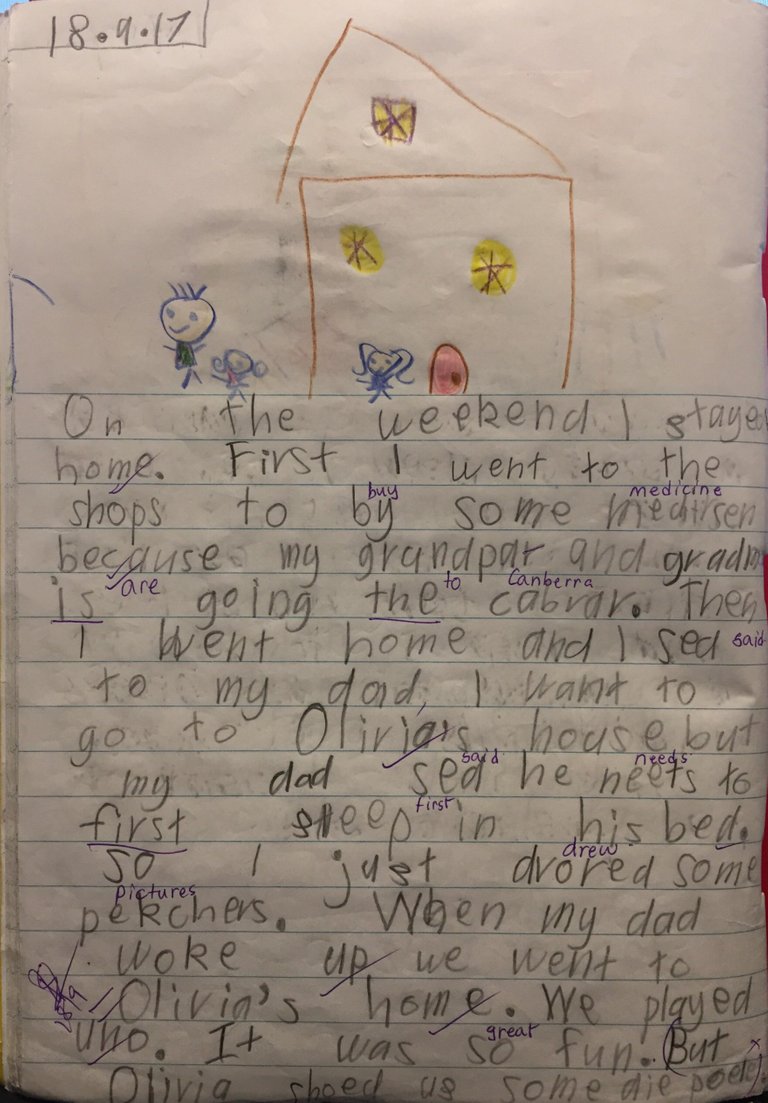 18.9.17
On the weekend I stayed
home. First I went to the
buy medicine
shops to by some medirsen
because my grandpar and gradm
are to Canberra
is going the cabrar. Then
I went home and I sed said
to my dad, I want to
go to Olivia's house but
said needs
my dad sed he neets to
first
first sleep in his bed.
drew
so I just drored some
pictures
pekchers. When my dad
woke up we went to
Olivia's home. We played
great
uno. It was so fun. (But
Olivia shoed us some die